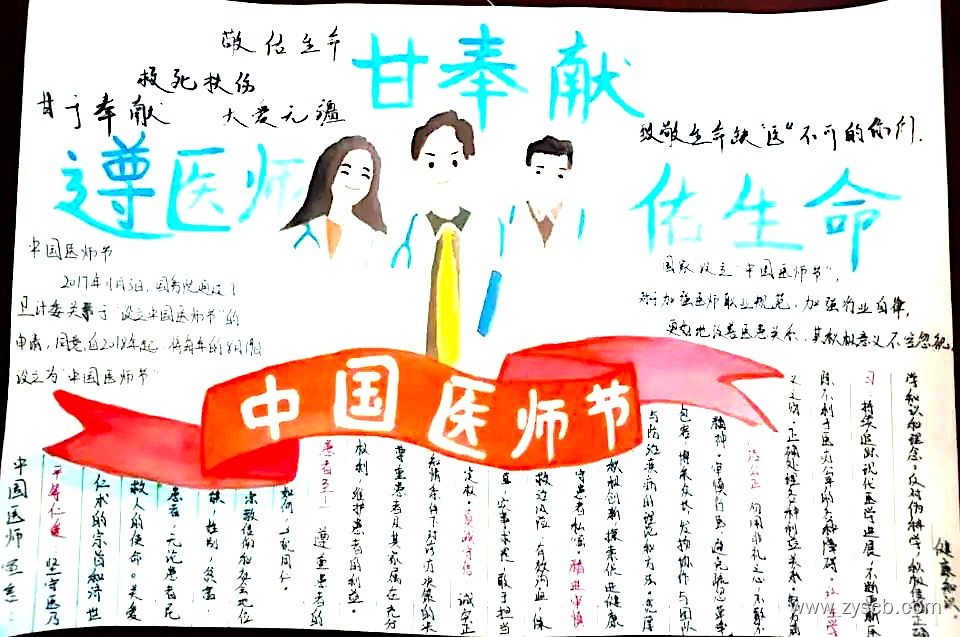 敬佑生命
救死扶伤
甘于奉献
大爱无疆
甘奉献
尊医师
佑生命
致敬生命缺"医"不可的你们.
中国医师节
2017年11月3日,国务院通过了
卫计委关于"设立中国医师节"的
申请,同意自2018年起,将每年的8月19日
设立为"中国医师节"
国家设立"中国医师节",
对于加强医师职业规范,加强行业自律,
更好地改善医患关系,其积极意义不容忽视.
中国医师节
中国医师宣言:
平等仁爱 坚守医乃
仁术的宗旨和济世
救人的使命。关爱
患者,无论患者民
族,性别,贫富
宗教信仰和社会地位
如何,一视同仁。
患者至上 尊重患者的
权利,维护患者的利益。
尊重患者及其家属在充分
知情条件下对诊疗决策的决
定权。真诚守信 诚实正
直,实事求是,敢于担当
救治风险,有效沟通,保
守患者私密。精进审慎
积极创新,探索促进健康
与防治疾病的理论和方法。宽厚
包容,博采众长,发扬协作与团队
精神。审慎行医,避免疏忽和草率
廉洁公正 勿用非礼之心,不取不
义之财。正确处理各种利益关系,努力消
除不利于医疗公平的各种障碍。终生学
习 持续追踪现代医学进展,不断更新医
学知识和理念。反对伪科学,积极传播正确
健康知识。
www.zyseb.com